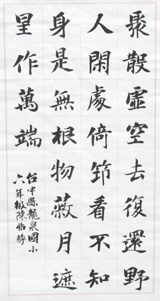 聚散虛空去復還野
人閑處倚筇看不知
身是無根物蔽月遮
星作萬端
台中縣龍泉國小
六年陳怡